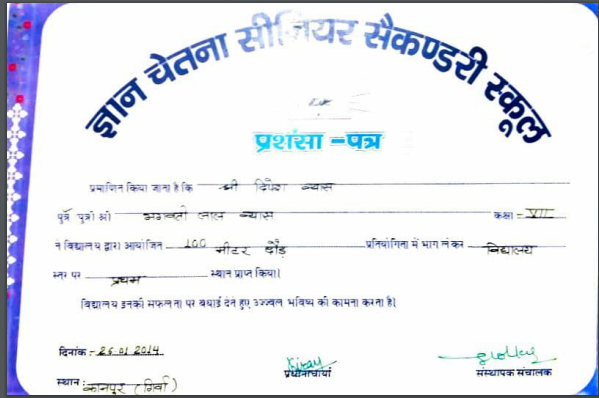 ज्ञान चेतना सीनियर सैकण्डरी स्कूल
प्रशंसा - पत्र
प्रमाणित किया जाता है कि श्री दिपेश व्यास
पुत्र पुत्री श्री भगवती लाल व्यास कक्षा - VII
ने विद्यालय द्वारा आयोजित 100 मीटर दौड़ प्रतियोगिता में भाग लेकर विद्यालय
स्तर पर प्रथम स्थान प्राप्त किया।
विद्यालय इनकी सफलता पर बधाई देते हुए उज्ज्वल भविष्य की कामना करता है।
दिनांक :- 26.01.2014
प्रधानाचार्या
संस्थापक संचालक
स्थान : कानपुर (गिर्वा)